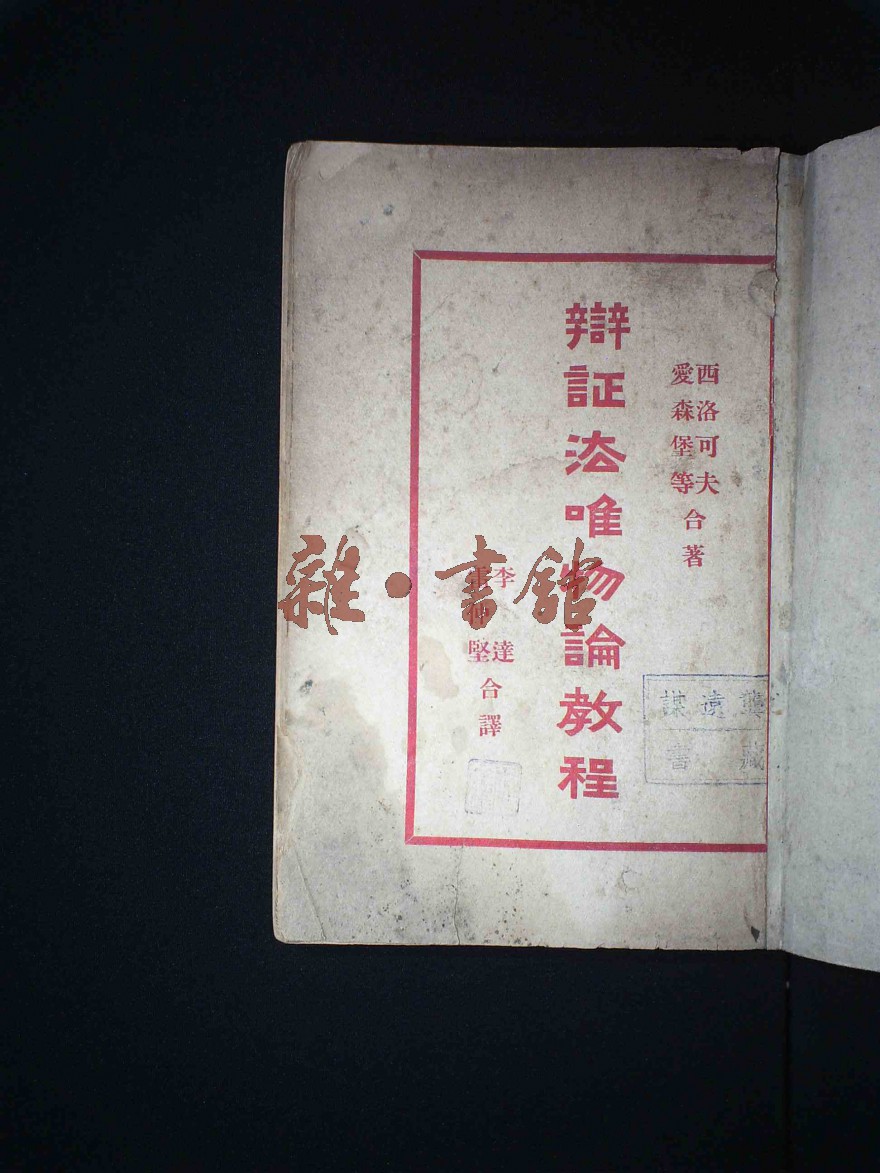 西洛可夫
愛森堡等
合著
辯証法唯物論教程
李達
仲堅
合譯
雜·書館
遠謀
藏書